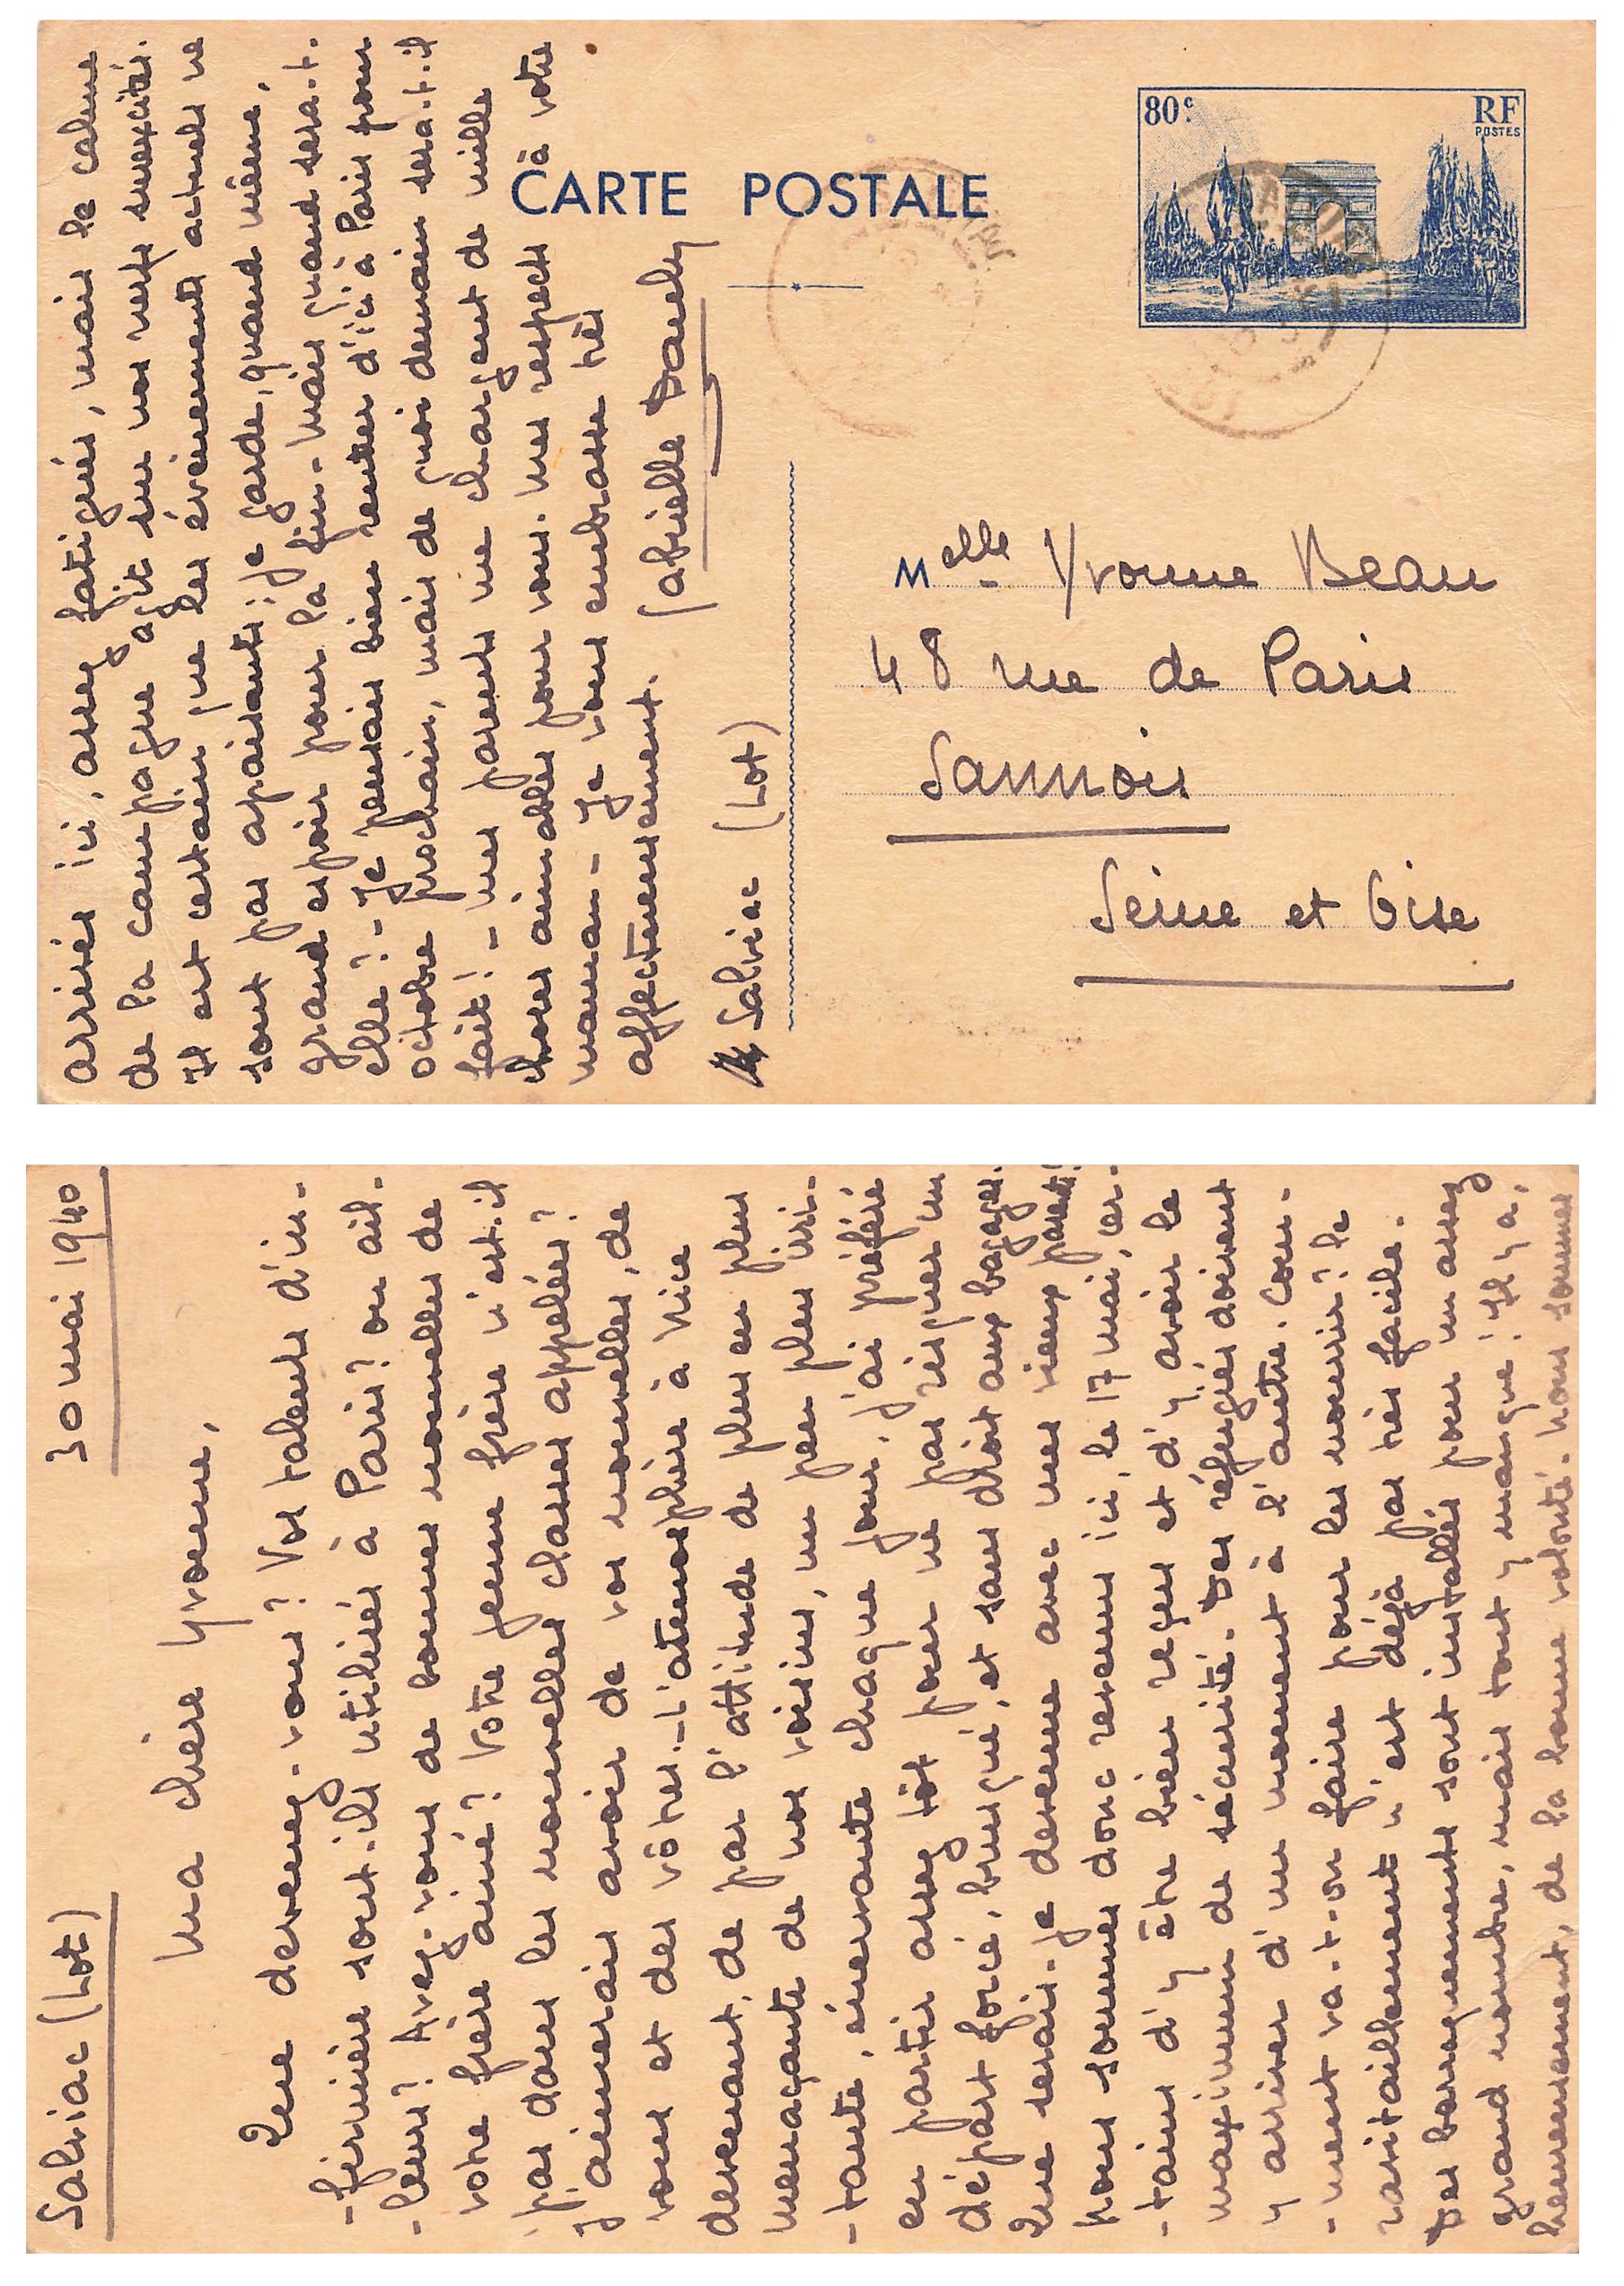 arrivés ici, assez fatigués, mais le calme
de la campagne agit sur nos nerfs surexcités.
Il est certain que les événements actuels ne
sont pas apaisants ; je garde, quand même,
grand espoir pour la fin - mais quand sera-t-
elle ? - Je pensais bien rentrer d'ici à Paris pour
octobre prochain, mais de quoi demain sera-t-il
fait ! - Mes parents me chargent de mille
choses aimables pour vous. Mes respects à votre
maman - Je vous embrasse très
affectueusement.
à Salviac (Lot)
CARTE POSTALE
80c.
RF
POSTES
Melle Yvonne Beau
48 rue de Paris
Sannois
Seine et Oise
Salviac (Lot) 30 mai 1940
Ma chère Yvonne,
Que devenez-vous ? Vos talents d'in-
-firmière sont-ils utilisés à Paris ? ou ail-
-leurs ? Avez-vous de bonnes nouvelles de
votre frère aîné ? Votre jeune frère n'est-il
pas dans les nouvelles classes appelées ?
J'aimerais avoir de vos nouvelles, de
vous et des vôtres. - L'atmosphère à Nice
devenant, de par l'attitude de plus en plus
menaçante de nos voisins, un peu plus irri-
-tante, énervante chaque jour, j'ai préféré
en partir assez tôt pour ne pas risquer un
départ forcé, brusqué, et sans droit aux bagages.
Que serais-je devenue avec mes vieux parents !
Nous sommes donc revenus ici, le 17 mai, cer-
-tains d'y être bien reçus et d'y avoir le
maximum de sécurité. Des réfugiés doivent
y arriver d'un moment à l'autre. Com-
-ment va-t-on faire pour les nourrir ? le
ravitaillement n'est déjà pas très facile.
Des baraquements sont installés pour un assez
grand nombre, mais tout y manque ! Il y a,
heureusement, de la bonne volonté. Nous sommes